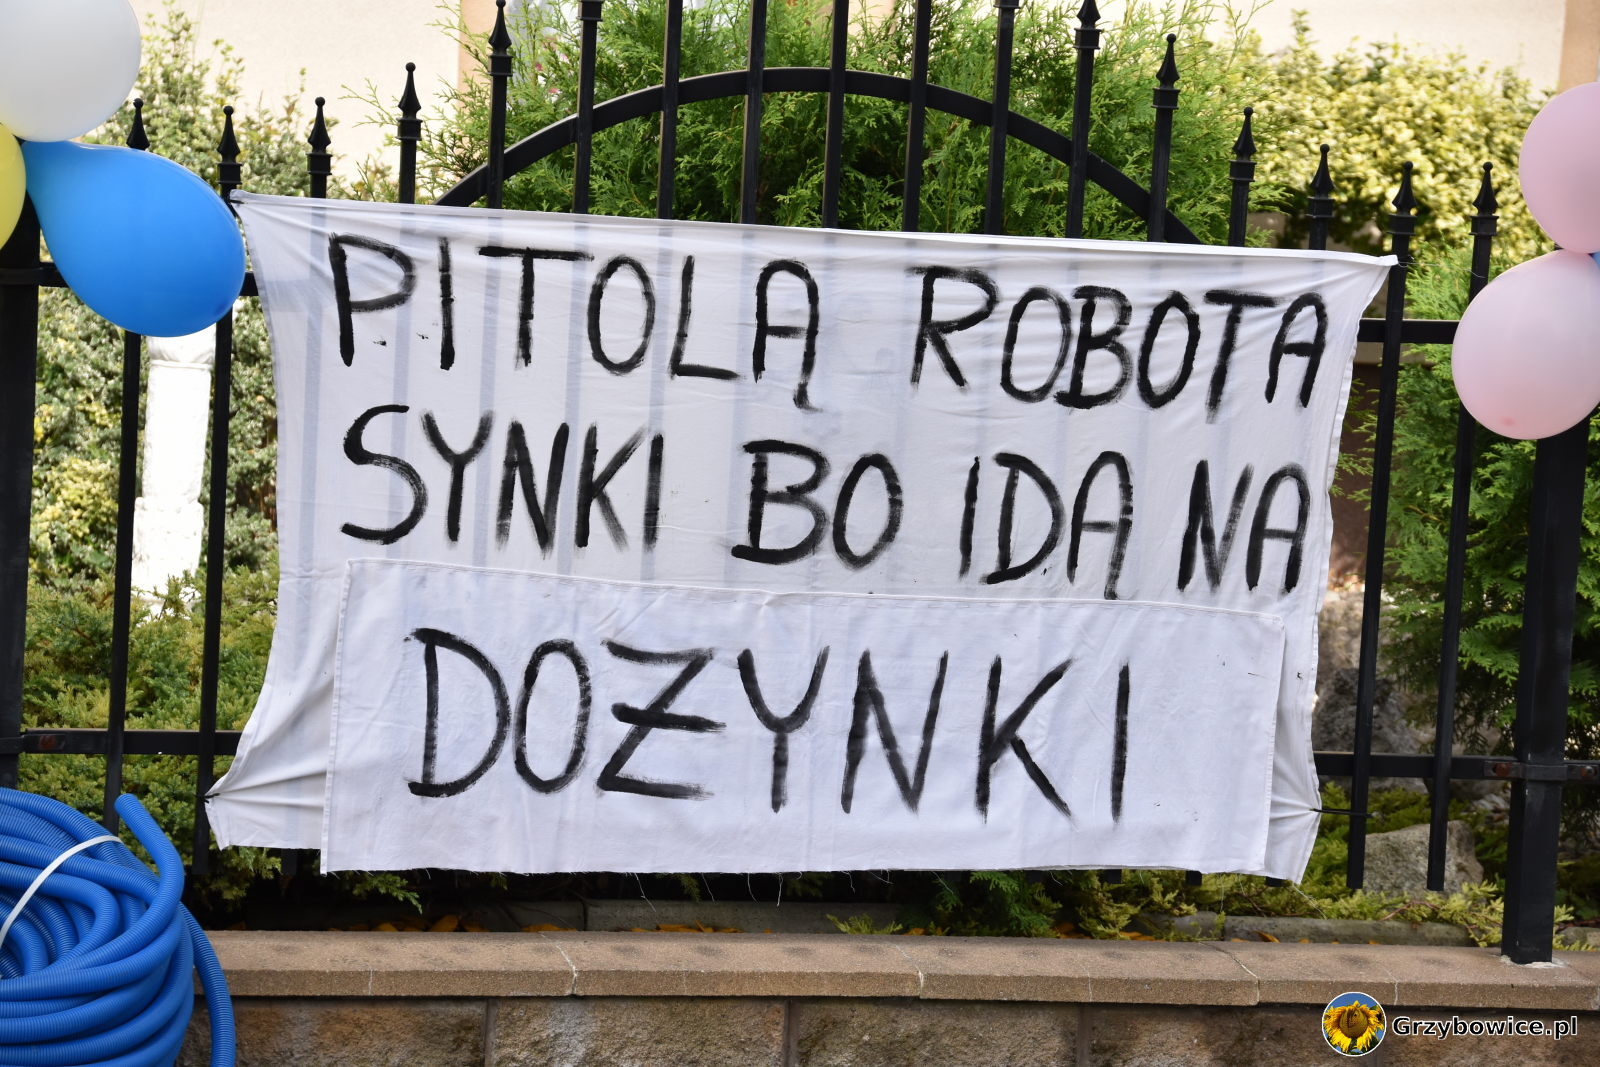 PITOLĄ ROBOTA
SYNKI BO IDĄ NA
DOƵYNKI
Grzybowice.pl